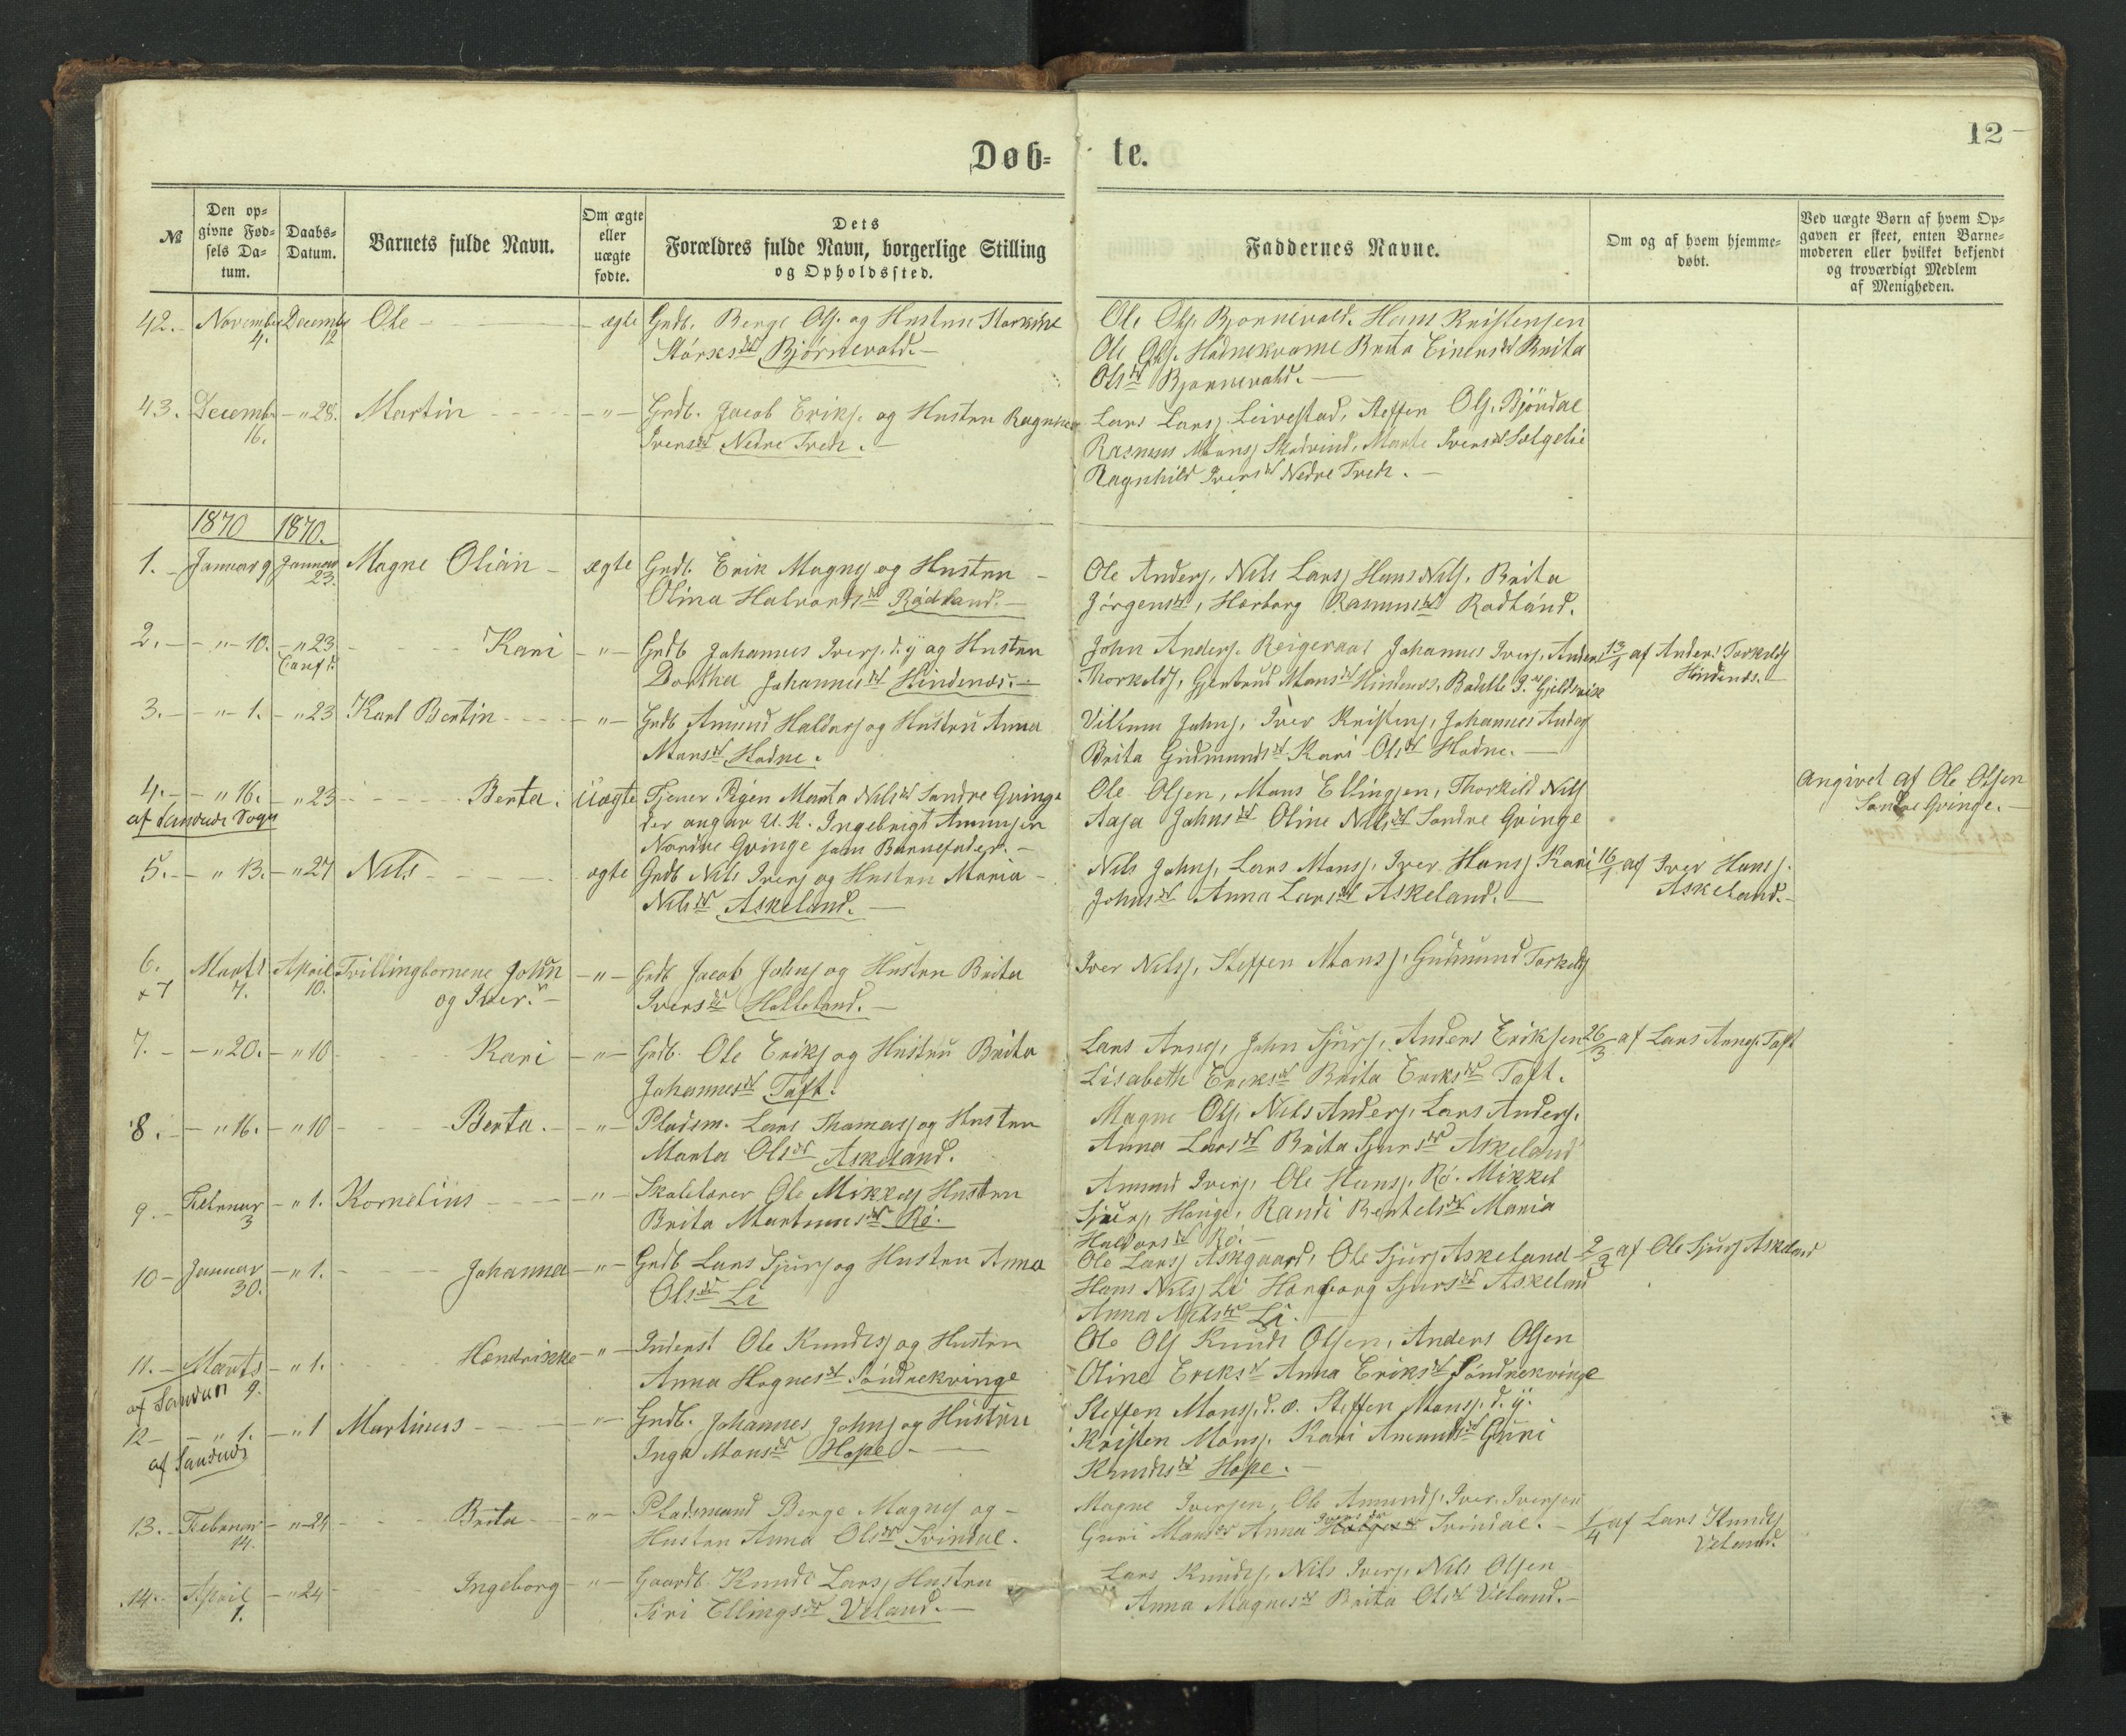 12
Døb-
te.
№
Den op-
givne Fød-
sels Da-
tum.
Daabs-
Datum.
Barnets fulde Navn.
Om ægte
eller
uægte
fødte.
Dets
Forældres fulde Navn, borgerlige Stilling
og Opholdssted.
Faddernes Navne.
Om og af hvem hjemme-
døbt.
Ved uægte Børn af hvem Op-
gaven er skeet, enten Barne-
moderen eller hvilket bekjendt
og troværdigt Medlem
af Menigheden.
42. November 4. Decembr 12 Ole ægte Grdb. Berge Ols. og Hustru
Bjørnevold.
Ole Ols. Bjørnevold. Hans Kristensen
Ole Ols. Hadnekvame Brita Einersdr Brita
Olsdr Bjørnevold.
43. Decembr 16. -"- 28. Martin -"- Grdb. Jacob Eriks. og Hustru
Iversdr Nedre
Lars Larss. Leivestad, Steffen Ols. Bjöndal
Rasmus Monss. Marte Iversdr
Ragnhild Iversdr Nedre
1870 1870.
1. Januar 9 Januar 23. Magne Olian ægte Grdb. Erik Magnes. og Hustru
Olina Halvorsdr Rödland.
Ole Anders. Nils Larss. Hans Nils. Brita
Jörgensdr, Herborg Rasmusdr Rödland.
2. -"- 10. -"- 23 Kari -"- Grdb Johannes Ivers. d.y og Hustru
Dorthea Johannesdr Hindenes.
John Anders. Johannes Ivers. Anders
Thorkelds. Gjertrud Monsdr Hindenes.
13/1 af Anders Torkelds
Hindenes.
3. -"- 1. -"- 23 Karl Bertin -"- Grdb Amund Haldors. og Hustru Anna
Monsdr Hodne.
Villum Johns. Iver Kristens. Johannes Anders
Brita Gudmundsdr Kari Olsdr Hodne.
4. -"- 16. -"- 23 Berta. Uægte Tjener Pigen Marta Nilsdr Søndre Qvinge
af Sandvds Sogn
der angav U. K. Ingebrigt Amunsen
Nordre Qvinge som Barnefader.
Ole Olsen, Mons Ellingsen, Thorkild Nils
Aasa Johnsdr Oline Nilsdr Søndre Qvinge
Angivet af Ole Olsen
Søndre Qvinge.
5. -"- 13. -"- 27 Nils ægte Grdb Nils Ivers. og Hustru Maria
Nilsdr Askeland.
Nils Johns. Lars Monss. Iver Hanss. Kari
Johnsdr Anna Larsdr Askeland.
16/1 af Iver Hanss.
Askeland.
6. & 7 Marts 7. April 10. Tvillingbornene John
og Iver.
-"- Grdb Jacob Johns. og Hustru Brita
Iversdr Halleland.
Iver Nilss. Steffen Monss. Gudmund Torkelds
7. -"- 20. -"- 10 Kari -"- Grdb. Ole Eriks. og Hustru Brita
Johannesdr Taft.
Lars Arnes. John Sjurs. Anders Eriksen
Lisabeth Eriksdr Brita Eriksdr Taft.
26/3 af Lars Arnes. Taft
8. -"- 16. -"- 10 Berta. -"- Pladsm. Lars Thomass. og Hustru
Marta Olsdr Askeland.
Magne Ols. Nils Anders. Lars Anders.
Anna Larsdr Brita Sjursdr Askeland
9. Februar 3 -"- 1. Kornelius -"- Skolelærer Ole Mikkels. Hustru
Brita Martinusdr Rö.
Amund Ivers. Ole Hanss. Rö. Mikkel
Sjurs. Houge. Randi Bertelsdr Maria
Haldorsdr Rö.
10 Januar 30. -"- 1. Johanna -"- Grdb Lars Sjurs. og Hustru Anna
Olsdr Li
Ole Larss. Askgaard, Ole Sjurs. Askeland
Hans Nilss. Li Herborg Sjursdr Askeland
Anna Nilsdr Li.
af Ole Sjurs. Askeland
11. Marts 9. -"- 1. Hendrikke -"- Inderst Ole Knuds. og Hustru
af
Anna Hognesdr Söndrekvinge
Ole Ols Knud Olsen, Anders Olsen
Oline Eriksdr Anna Eriksdr Söndrekvinge
12 -"- 1. -"- 1 Martinus -"- Grdb. Johannes Johns. og Hustru
af Sandvds
Inga Monsdr Hope
Steffen Monss. d. æ. Steffen Monss. d. y.
Kristen Monss. Kari Amundsdr Guri
Knudsdr Hope.
13. Februar 14. -"- 24 Brita -"- Pladsmand Berge Magnes. og
Hustru Anna Olsdr Svindal.
Magne Iversen, Ole Amunds. Iver Iversen
Guri Monsdr Anna Iversdr Svindal.
1/4 af Lars Knuds
Veland.
14. April 1. -"- 24 Ingeborg -"- Gaardb. Knud Larss. Hustru
Siri Ellingsdr Veland.
Lars Knuds. Nils Ivers. Nils Olsen
Anna Magnesdr Brita Olsdr Veland.